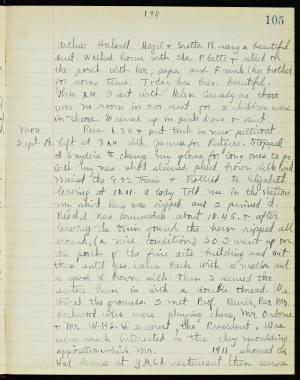 194
105
Arthur Halsall. Hazel + Gretta B sang a beautiful
duet. Walked home with Ida Pletts + stood on
the porch with her, papa and Frank (her brother)
for some time. Today has been beautiful.
This A.M. I sat with Helen Cassedy as there
was no room in our seat for 3 children were
in there. Dressed up in pink dress + suit
Mon. Rose 6.30 + put tuck in new petticoat.
Sept. Left at 8 A.M. with James for Rutgers. Stopped
at Snyders to change my gloves for long ones to go
with my new short sleeved
Missed the 8.52 train + trolleyed to Elizabeth
leaving at 10.11. A lady told me in the station
my skirt hem was ripped and I pinned it.
Reached New Brunswick about 10.45 + after
leaving the train found the hem ripped all
around, (a nice condition) so I went up on
the porch of the fine arts building and sat
there until Jas. came back with a needle and
a spool of brown silk. Then I sewed the
entire hem in with a double thread. We
toured the grounds. I met Prof. Bevier, Reg. Mr.
who were playing chess, Mr. Osborne
+ Mr. W.H.S. Demarest, the President. Was
very much interested in the clay moulding
apparatus which Mr. 1911 showed us
Had dinner at Y.M.C.A. restaurant then came